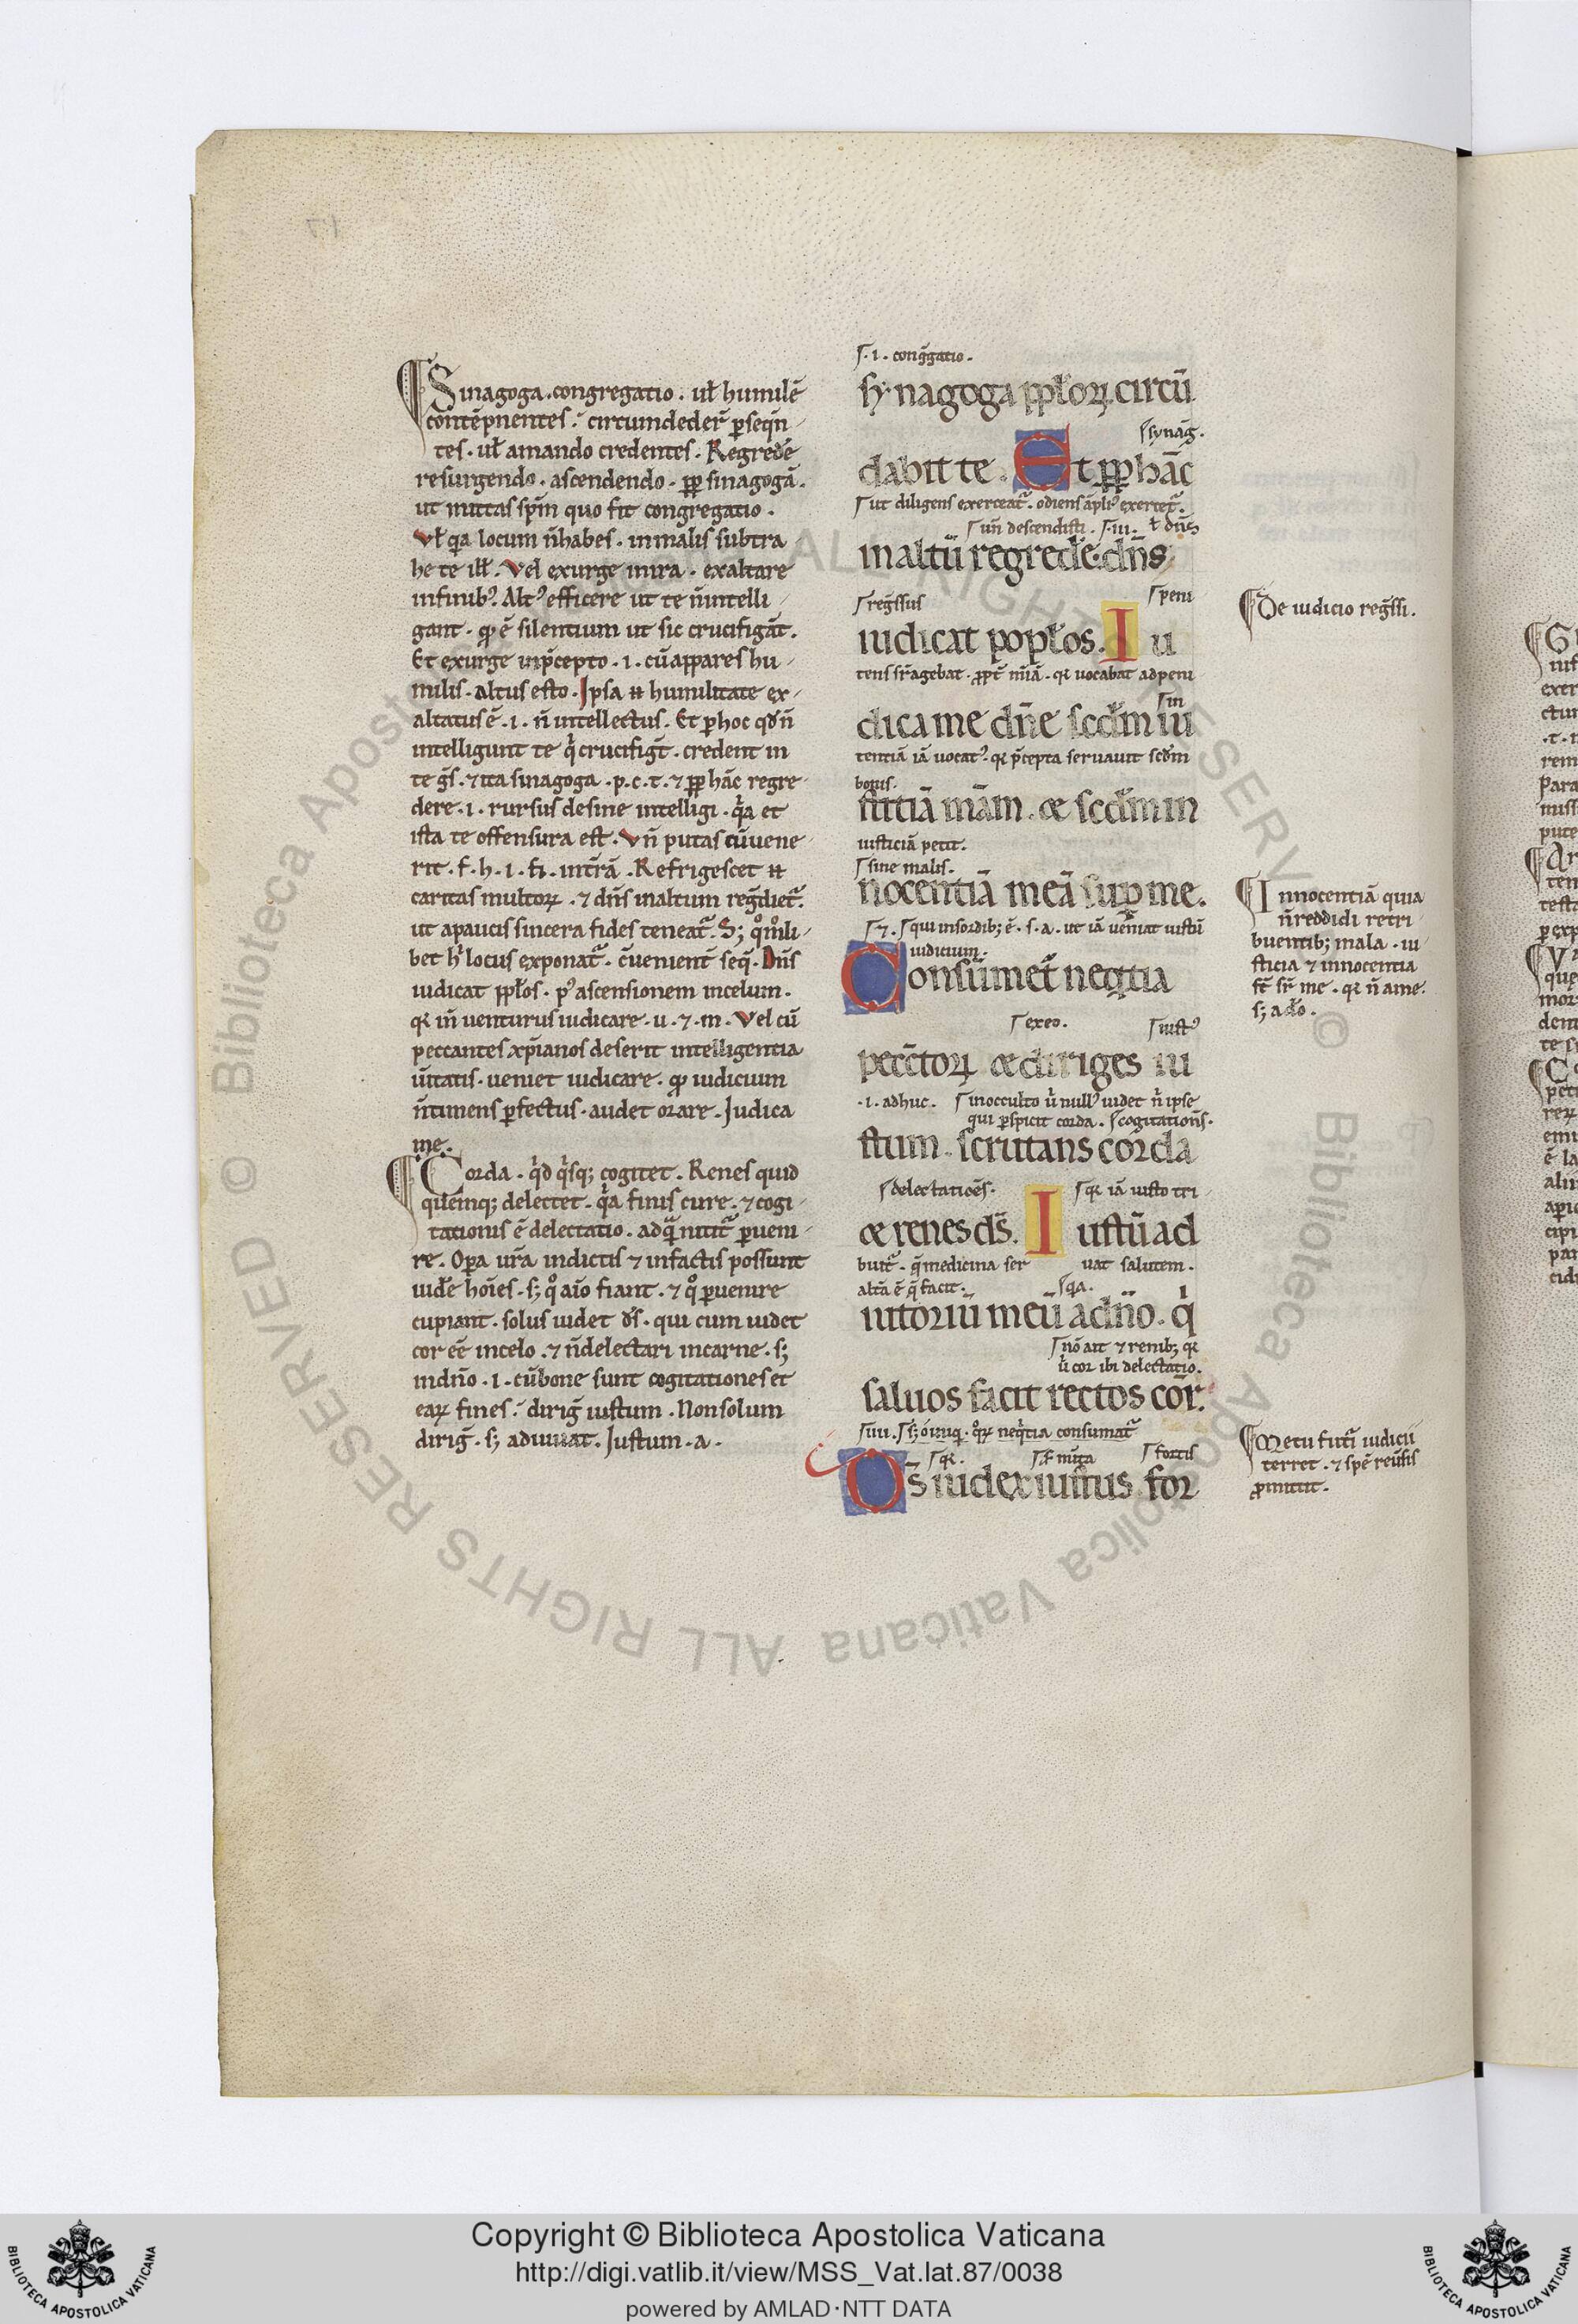 ¶ Sinagoga · congregatio · uł humilē
contēpnentes · circumdeder̄ p̱seq̄n
tes · uł amando credentes · Regredē
resurgendo · ascendendo · ꝓp sinagogā ·
ut mittas sp̄m quo fit congregatio ·
Vł q̇a locum n̄ habes · in malis subtra
he te ill̄ · Vel exurge in ira · exaltare
in finibꝰ · Altꝰ efficere ut te n̄ intelli
gant · ꝙ ē silentium ut sic crucifigāt ·
Et exurge in p̄cepto · i · cū appares hu
milis · altus esto · Ipsa n̄ humilitate ex
altatus ē · i · n̄ intellectus · Et p̱ hoc qd̄ n̄
intelligunt te q̇ crucifigt̄ · credent in
te ḡs · ⁊ ita sinagoga · p · c · t · ⁊ ꝓp hāc regre
dere · i · rursus desine intelligi · q̇a et
ista te offensura est · Vn̄ putas cū uene
rit · f · h · i · fi · in tr̄ā · Refrigescet n̄
caritas multoꝝ · ⁊ dn̄s in altum reḡdiet̄ ·
ut a paucis sincera fides teneat̄ · Sꝫ qͦmͦli
bet hͥ locus exponat̄ · c̄uenient̄ seq̄ · Dn̄s
iudicat ppłos · pꝰ ascensionem in celum ·
qꝛ in̄ uenturus iudicare · u · ⁊ · m · Vel cū
peccantes xp̄ianos deserit intelligentia
ūitatis · ueniet iudicare · ꝙ iudicium
n̄ timens p̱fectus · audet orare · Iudica
me ·
¶ Corda · qͥd qͥsqꝫ cogitet · Renes quid
quēmqꝫ delectet · q̇a finis cure · ⁊ cogi
tationis ē delectatio · ad q̄ nitit̄ p̱ueni
re · Op̱a ur̄a in dictis ⁊ in factis possunt
uidē hoīes · sꝫ qͦ aīo fiant · ⁊ qͦ p̱uenire
cupiant · solus uidet d̄s · qui cum uidet
cor eē in celo · ⁊ n̄ delectari in carne · sꝫ
in dn̄o · i · cū bone sunt cogitationes et
eaꝝ fines · diriḡ iustum · Non solum
diriḡ · sꝫ adiuuat · Iustum · a ·
· i · conḡgatio ·
synagoga ppłoꝝ circū
synaḡ ·
dabit te · Et ꝓp hāc
ut diligens exerceat̄ · odiens āpliꝰ exercet̄ ·
un̄ descendisti · · iii · ł dn̄e
in altū regredē · dn̄s
reḡssus peni
iudicat popłos · Iu
tens sr̄agebat · ꝓpt̄ mīā · qꝛ uocabat ad peni
in
dica me dn̄e scd̄m iu
tentiā iā uocatꝰ · qꝛ p̄cepta seruauit scd̄m
bonis ·
stitiā mām · æ scd̄m in
iusticiā petit ·
sine malis ·
nocentiā meā sup̱ me ·
⁊ · qui in sordibꝫ ē · s · a · ut iā ueniat iustū
iudicium ·
Consūmet̄ neq̇tia
exeo · iustꝰ
peccc̄toꝝ æ diriges iu
· i · adhuc · in occulto ū nullꝰ uidet n̄ ipse
qui p̱spicit corda · cogitation̄s ·
stum · scrutans corda
delectatioēs · qꝛ iā iusto tri
æ renes d̄s · Iustū ad
buit̄ · q̄ medicina ser uat salutem ·
alt̄a ē q̄ facit · q̇a ·
iutoriū meū a dn̄o · qͥ
nō ait ⁊ renibꝫ qꝛ
ū cor ibi delectatio ·
saluos facit rectos cōr ·
iiii · sꝫ o iniq̄ · qͦꝝ neq̇tia consumat̄
qꝛ · fortis
Ds̄ iudex iustus for
¶ De iudicio reḡssi ·
¶ Innocentiā quia
n̄ reddidi retri
buentibꝫ mala · iu
sticia ⁊ innocentia
st̄ sr̄ me · qꝛ n̄ a me ·
sꝫ a dō ·
¶ Metu futi̅ iudicii
terret · ⁊ spē reūsis
ꝓmittit ·
Copyright © Biblioteca Apostolica Vaticana
http://digi.vatlib.it/view/MSS_Vat.lat.87/0038
powered by AMLAD·NTT DATA
BIBLIOTECA APOSTOLICA VATICANA
BIBLIOTECA APOSTOLICA VATICANA
© Biblioteca Apostolica Vaticana ALL RIGHTS RESERVED